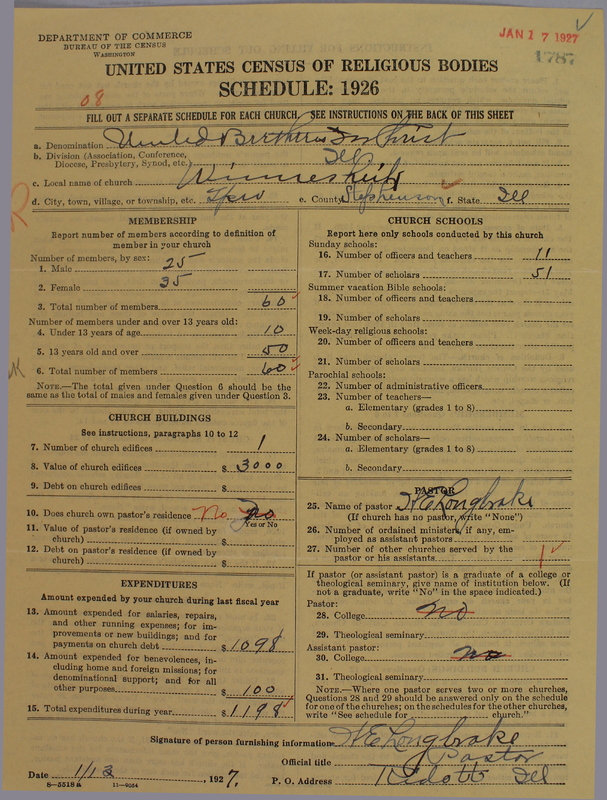 DEPARTMENT OF COMMERCE
BUREAU OF THE CENSUS
WASHINGTON
JAN 17 1927
1787
UNITED STATES CENSUS OF RELIGIOUS BODIES
SCHEDULE: 1926
08
FILL OUT A SEPARATE SCHEDULE FOR EACH CHURCH. SEE INSTRUCTIONS ON THE BACK OF THIS SHEET
a. Denomination United Brethren In Christ
b. Division (Association, Conference, Diocese, Presbytery, Synod, etc.) Ill
c. Local name of church Winneshiek
d. City, town, village, or township, etc. e. County Stephenson f. State Ill
MEMBERSHIP
Report number of members according to definition of member in your church
Number of members, by sex:
1. Male 25
2. Female 35
3. Total number of members 60
Number of members under and over 13 years old:
4. Under 13 years of age 10
5. 13 years old and over 50
6. Total number of members 60
NOTE.—The total given under Question 6 should be the same as the total of males and females given under Question 3.
CHURCH BUILDINGS
See instructions, paragraphs 10 to 12
7. Number of church edifices 1
8. Value of church edifices $ 3000
9. Debt on church edifices $
10. Does church own pastor's residence No
Yes or No
11. Value of pastor's residence (if owned by church) $
12. Debt on pastor's residence (if owned by church) $
EXPENDITURES
Amount expended by your church during last fiscal year
13. Amount expended for salaries, repairs, and other running expenses; for improvements or new buildings; and for payments on church debt $ 1098
14. Amount expended for benevolences, including home and foreign missions; for denominational support; and for all other purposes $ 100
15. Total expenditures during year $ 1198
CHURCH SCHOOLS
Report here only schools conducted by this church
Sunday schools:
16. Number of officers and teachers 11
17. Number of scholars 51
Summer vacation Bible schools:
18. Number of officers and teachers
19. Number of scholars
Week-day religious schools:
20. Number of officers and teachers
21. Number of scholars
Parochial schools:
22. Number of administrative officers
23. Number of teachers—
a. Elementary (grades 1 to 8)
b. Secondary
24. Number of scholars—
a. Elementary (grades 1 to 8)
b. Secondary
PASTOR
25. Name of pastor H E Longbrake
(If church has no pastor, write "None")
26. Number of ordained ministers, if any, employed as assistant pastors
27. Number of other churches served by the pastor or his assistants 1
If pastor (or assistant pastor) is a graduate of a college or theological seminary, give name of institution below. (If not a graduate, write "No" in the space indicated.)
Pastor:
28. College no
29. Theological seminary
Assistant pastor:
30. College no
31. Theological seminary
NOTE.—Where one pastor serves two or more churches, Questions 28 and 29 should be answered only on the schedule for one of the churches; on the schedules for the other churches, write "See schedule for church."
Signature of person furnishing information H E Longbrake
Official title Pastor
Date 1/13, 1927. P. O. Address Ridott Ill
8—5518a 11—9054